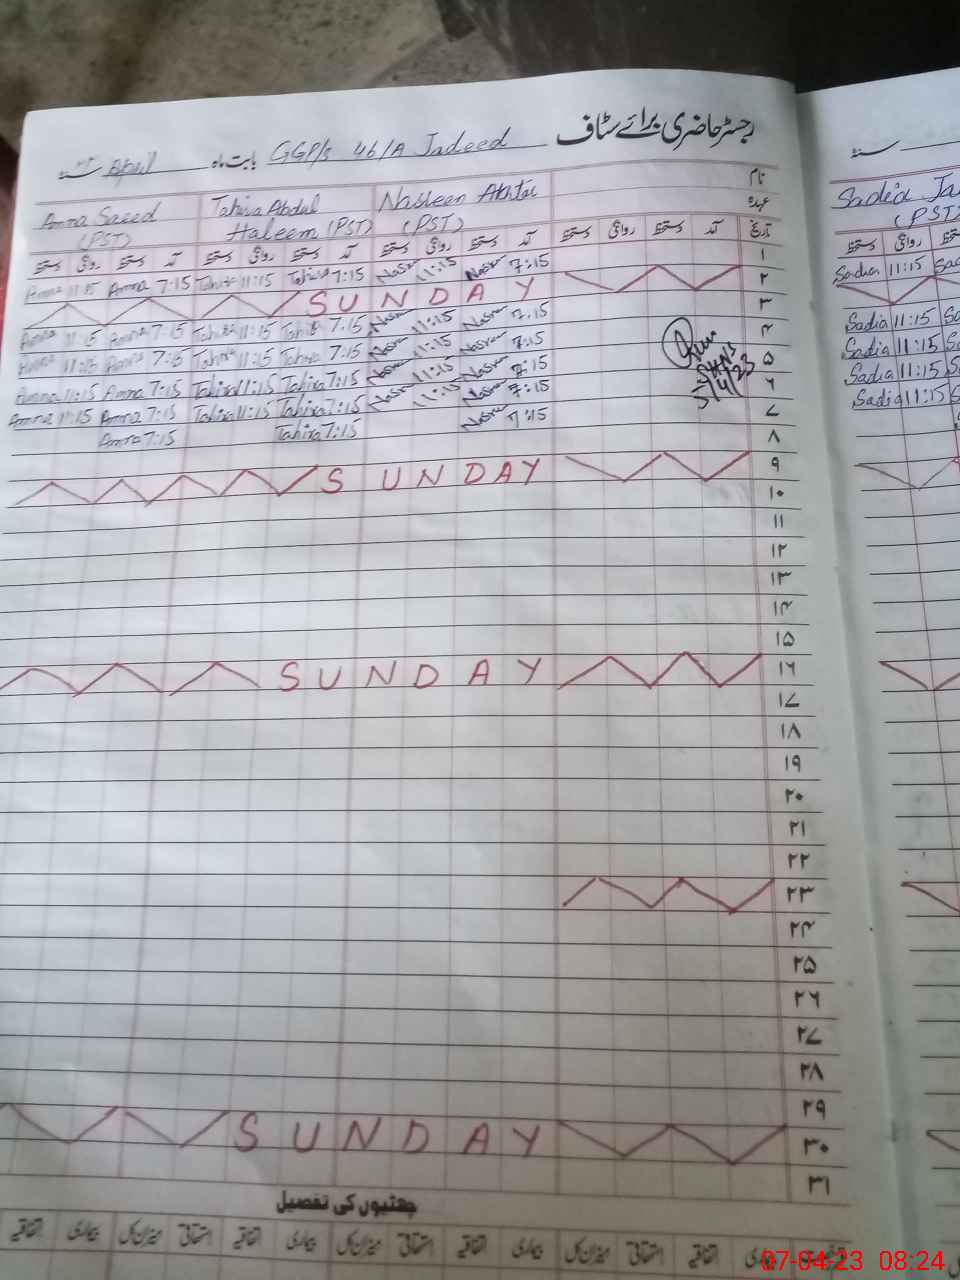 رجسٹر حاضری برائے سٹاف
بابت ماہ GGP/s 46/A Jadeed April سنہ ۲۳
نام Nasreen Akhtar Tahira Abdul Amna Saeed
عہدہ (PST) Haleem (PST) (PST)
تاریخ آمد دستخط روانگی دستخط آمد دستخط روانگی دستخط آمد دستخط روانگی دستخط آمد دستخط روانگی دستخط
Amna 11:15 Amna 7:15 Tahira 11:15 Tahira 7:15 Nasreen 11:15 Nasreen 7:15 ۱
SUNDAY ۲
Amna 11:15 Amna 7:15 Tahira 11:15 Tahira 7:15 Nasreen 11:15 Nasreen 7:15 ۳
Amna 11:15 Amna 7:15 Tahira 11:15 Tahira 7:15 Nasreen 11:15 Nasreen 7:15 ۴
Amna 11:15 Amna 7:15 Tahira 11:15 Tahira 7:15 Nasreen 11:15 Nasreen 7:15 ۵
Amna 11:15 Amna 7:15 Tahira 11:15 Tahira 7:15 Nasreen 11:15 Nasreen 7:15 ۶
Amna 7:15 Tahira 7:15 Nasreen 7:15 ۷
۸
SUNDAY ۹
۱۰
۱۱
۱۲
۱۳
۱۴
۱۵
SUNDAY ۱۶
۱۷
۱۸
۱۹
۲۰
۲۱
۲۲
۲۳
۲۴
۲۵
۲۶
۲۷
۲۸
۲۹
SUNDAY ۳۰
۳۱
چھٹیوں کی تفصیل
بیماری اتفاقیہ استحقاقی میزان کل بیماری اتفاقیہ استحقاقی میزان کل بیماری اتفاقیہ استحقاقی میزان کل بیماری اتفاقیہ
سنہ
Sadia
(PST)
دستخط روانگی
Sadia 11:15
Sadia 11:15
Sadia 11:15
Sadia 11:15
Sadia 11:15
07-04-23 08:24